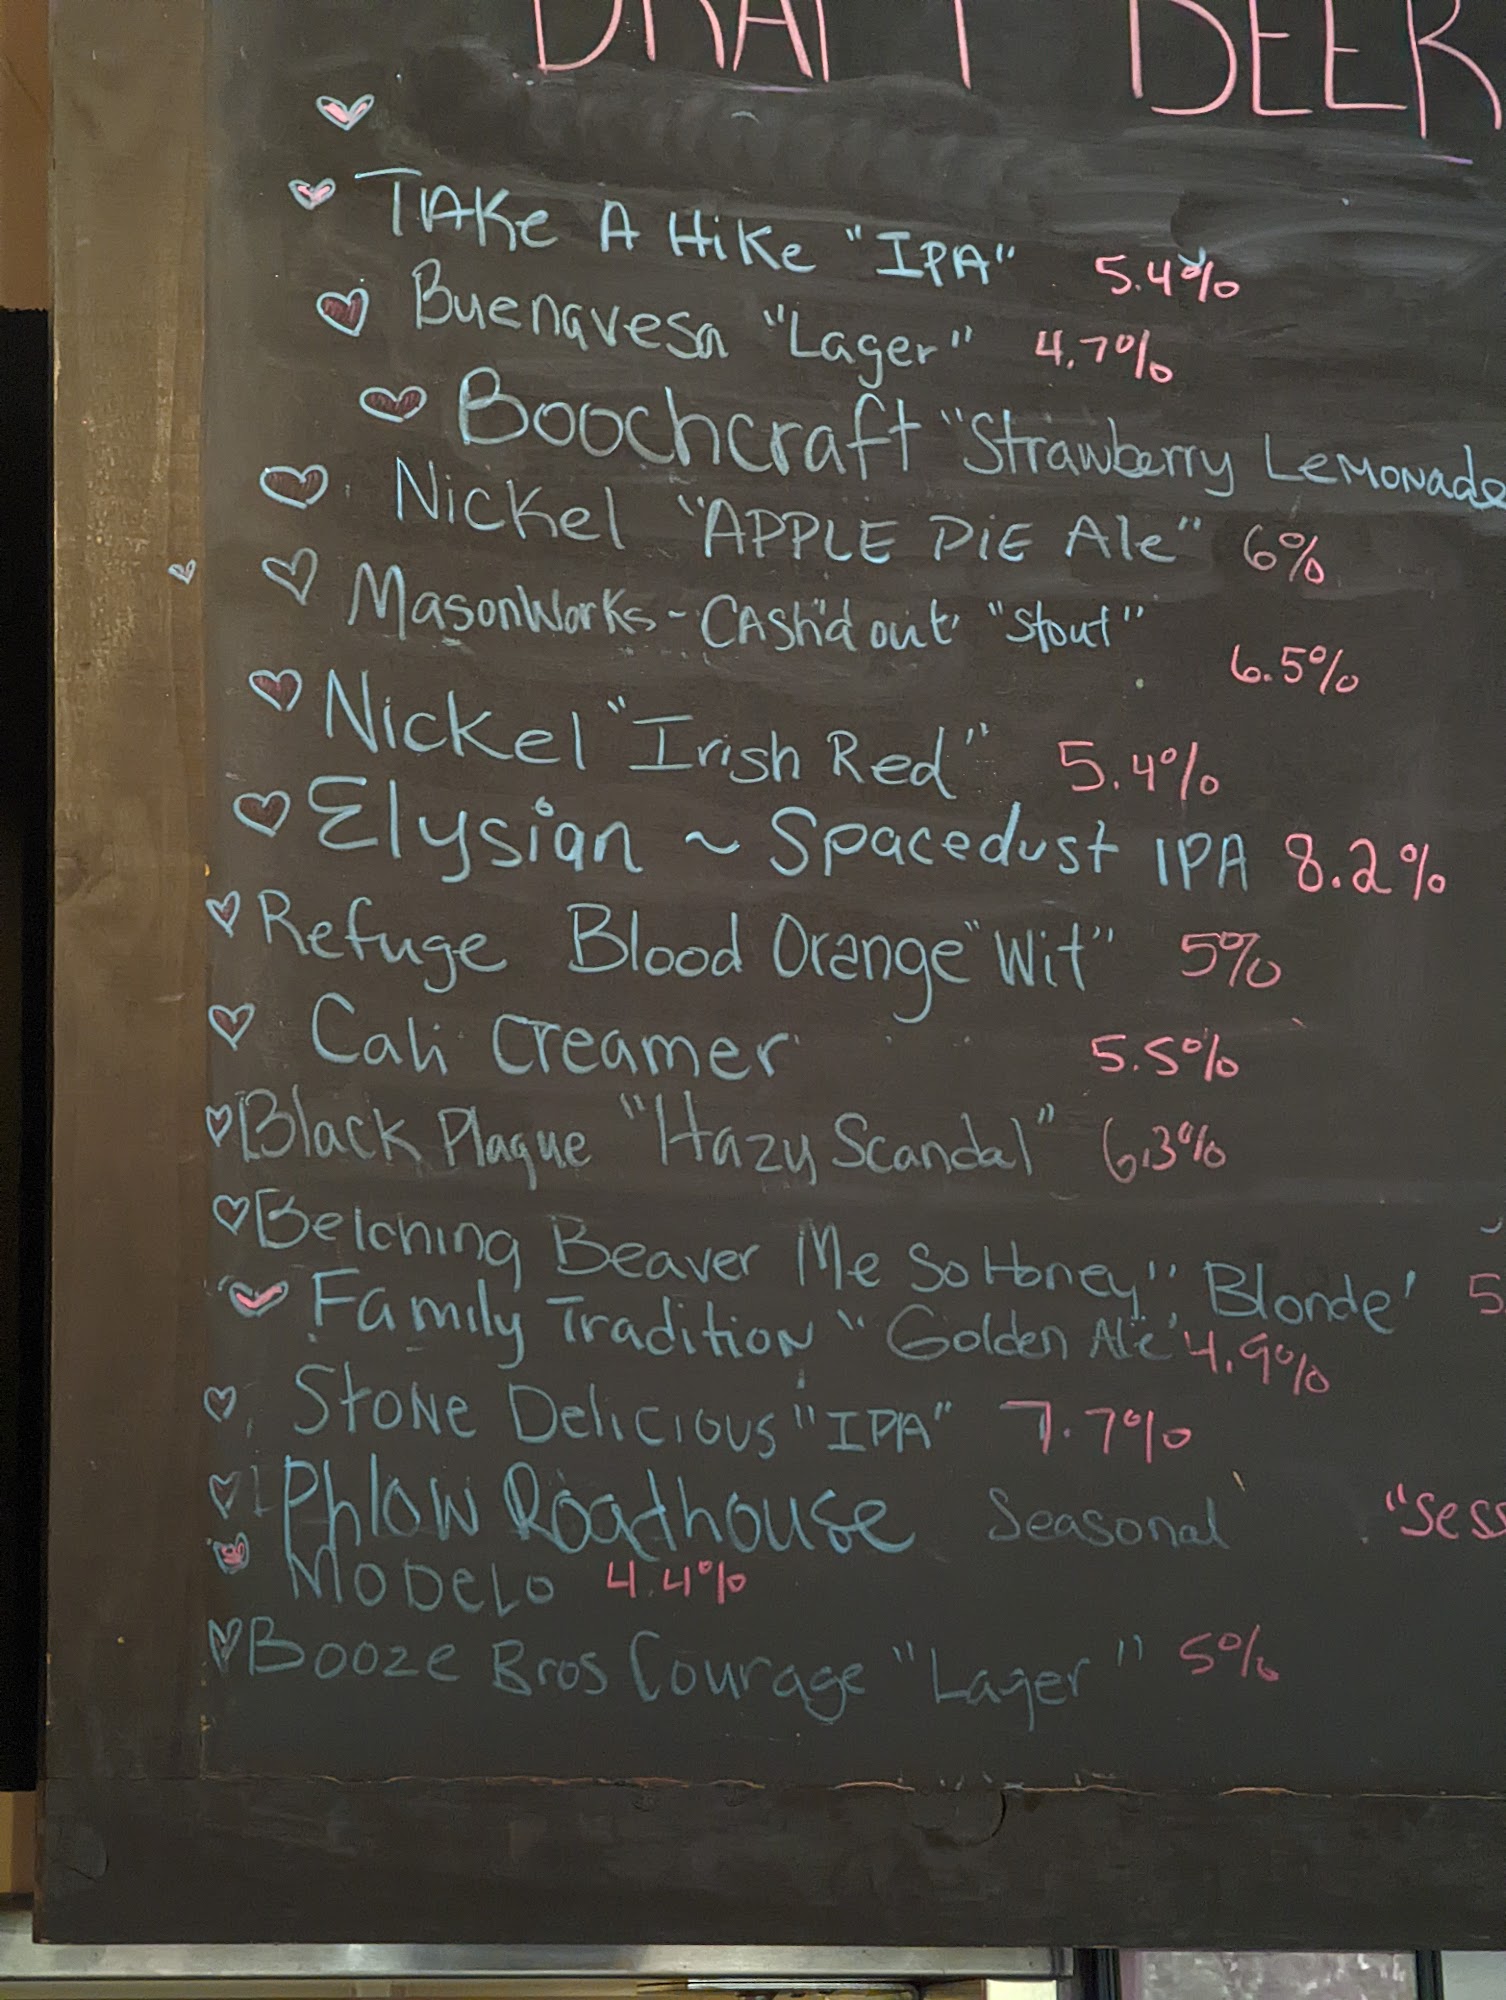 DRAFT BEER
TAKe A HiKe "IPA" 5.4%
Buenavesa "Lager" 4.7%
Boochcraft "Strawberry Lemonade
Nickel "APPLE PiE Ale" 6%
MasonWorks - CAsh'd out "Stout" 6.5%
Nickel "Irish Red" 5.4%
Elysian ~ Spacedust IPA 8.2%
Refuge Blood Orange "Wit" 5%
Cali Creamer 5.5%
Black Plague "Hazy Scandal" 6.3%
Belching Beaver Me So Honey" Blonde' 5
Family Tradition "Golden Ale" 4.9%
Stone Delicious "IPA" 7.7%
Phlow Roadhouse Seasonal "Sess
Modelo 4.4%
Booze Bros Courage "Lager" 5%